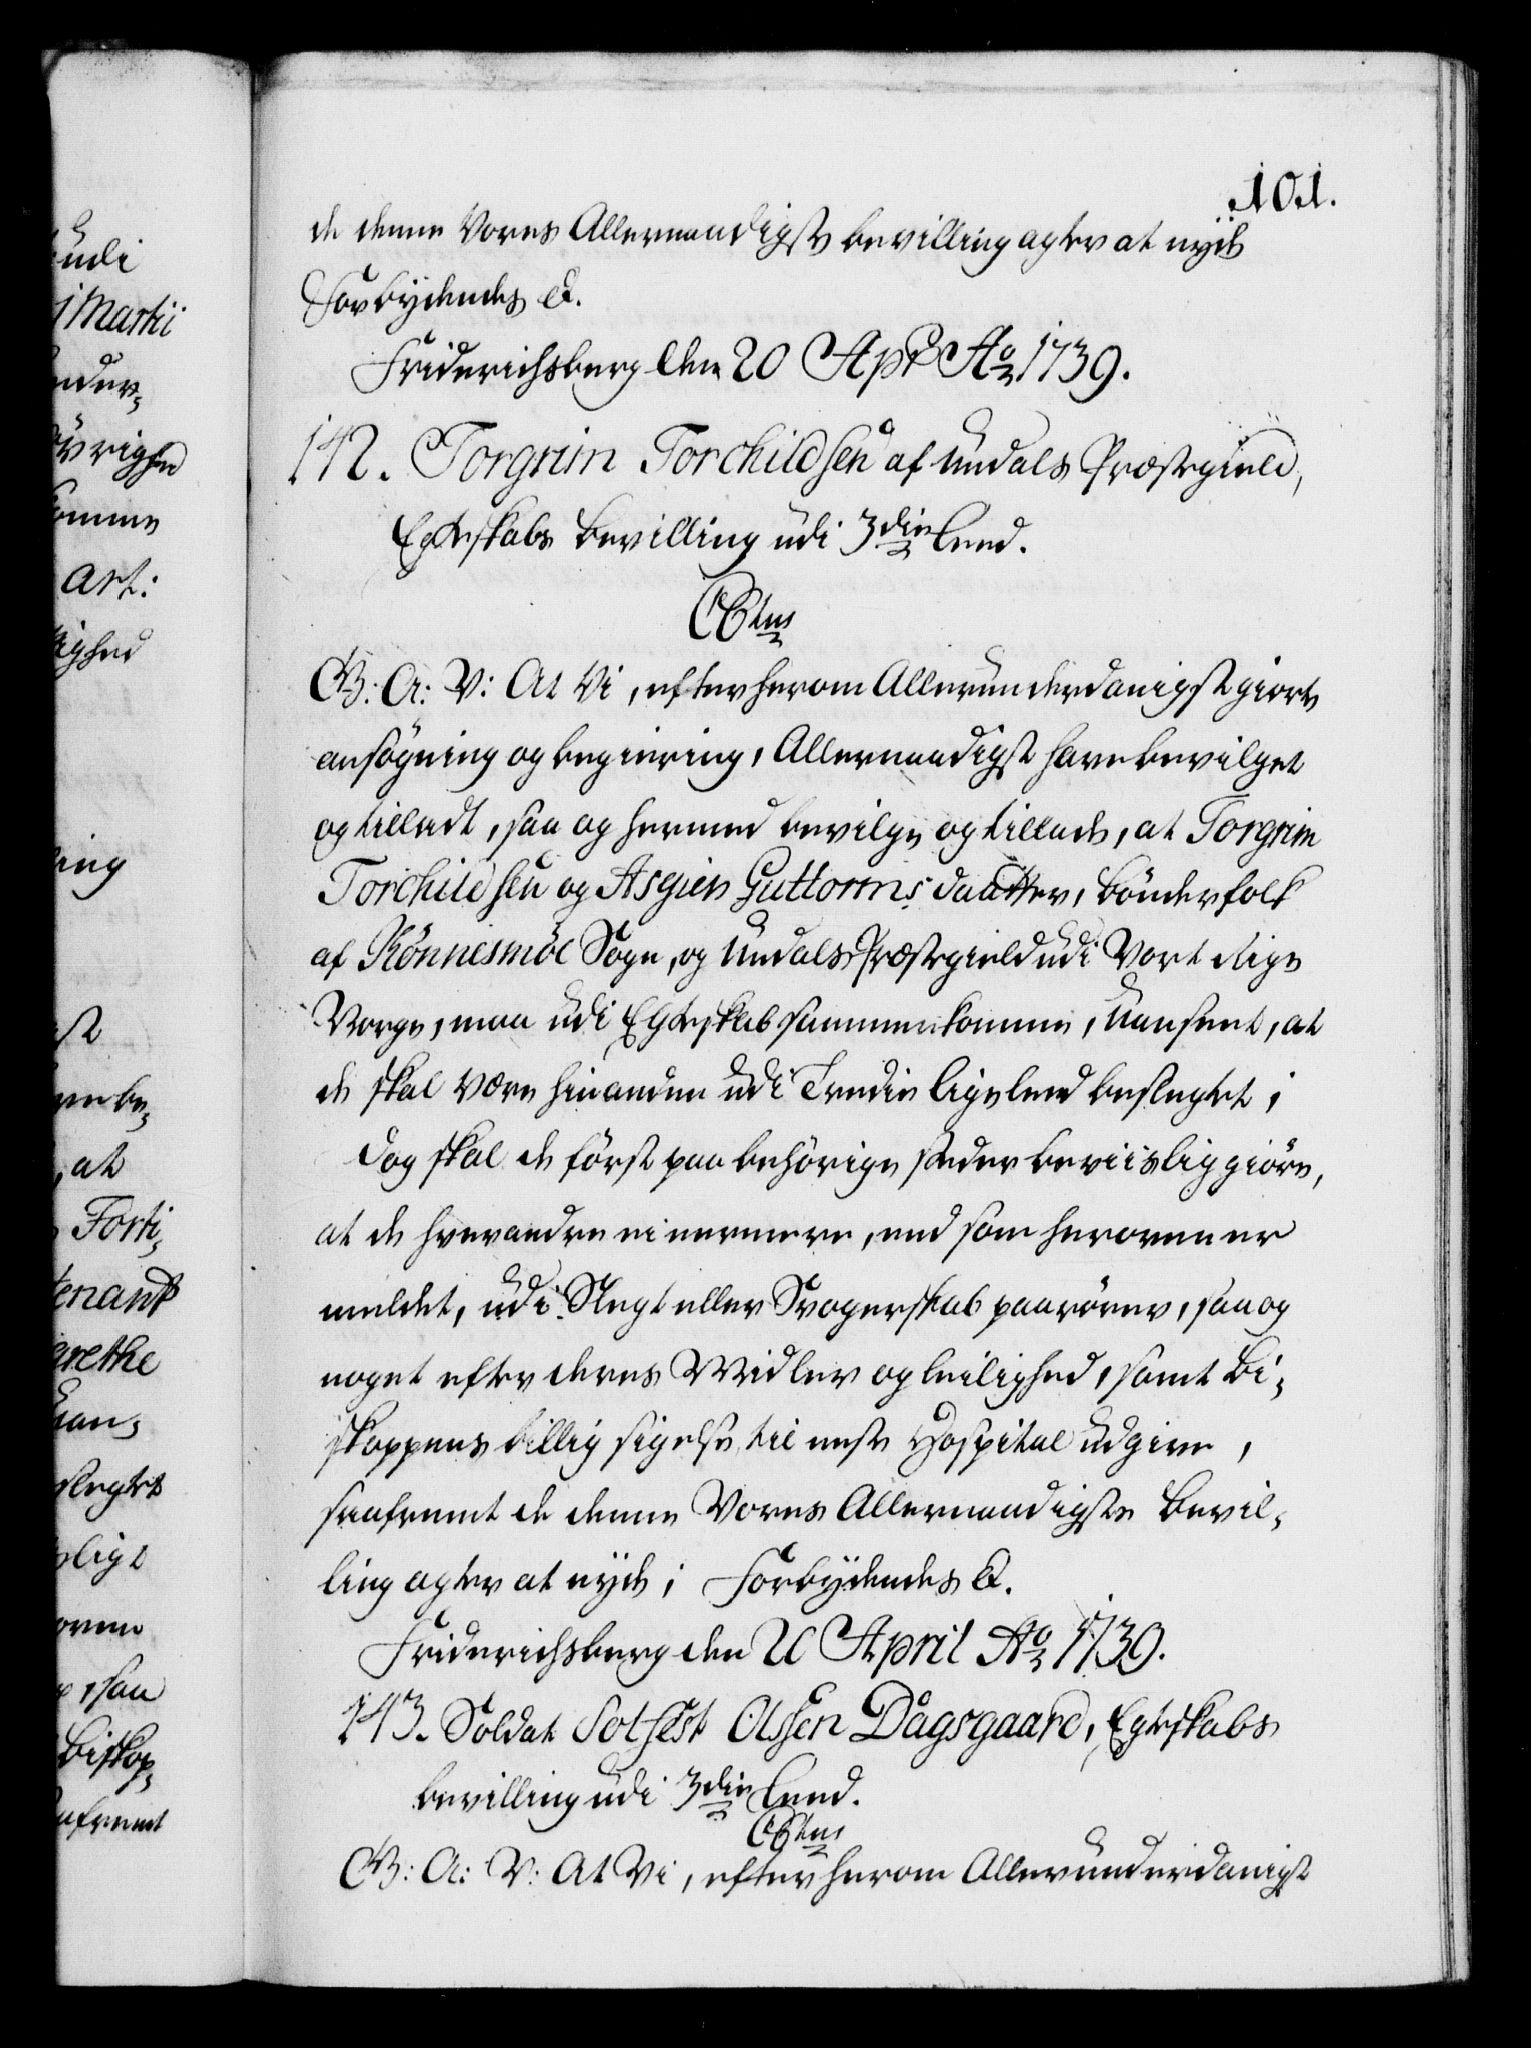 101.
de denne Vores Allernaadigste bevilling agter at nyde
Forbydendes &.
Friderichsberg den 20 Apr. Ao 1739.
142. Torgrim Torchildsen af Undals Præstegield,
Egteskabs bevilling udi 3die Leed.
C6tus
G: A: V: At Vi, efter herom Allerunderdanigst giorte
ansögning og begiering, Allernaadigst have bevilget
og tilladt, saa og hermed bevilge og tillade, at Torgrim
Torchildsen og Asgier Guttorms daatter, bönderfolk
af Könnismöe Sogn, og Undals Præstegield udi Vort Rige
Norge, maa udi Egteskab sammenkomme, uanseet, at
de skal være hinanden udi Tredie lige leed beslegtet;
dog skal de först paa behörige steder beviislig giöre,
at de hverandre ei nermere, end som heroven er
meldet, udi Slegt eller Svogerskab paarörer, saa og
noget efter deres Midler og leilighed, samt Bi-
skoppens billig sigelse, til neste Hospital udgive,
saafremt de denne Vores Allernaadigste Bevil-
ling agter at nyde; Forbydendes &.
Friderichsberg den 20 April Ao 1739.
143. Soldat Solfest Olssen Dagsgaard, Egteskabs
bevilling udi 3die Leed.
C6tus
G: A: V: At Vi, efter herom Allerunderdanigst
udi
Martii
under-
övrighed
komme
art:
lighed
ling
st
have be-
, at
Forti-
tenant
grethe
uan-
slegtet
slige
oven
, saa
Biskop-
saafremt